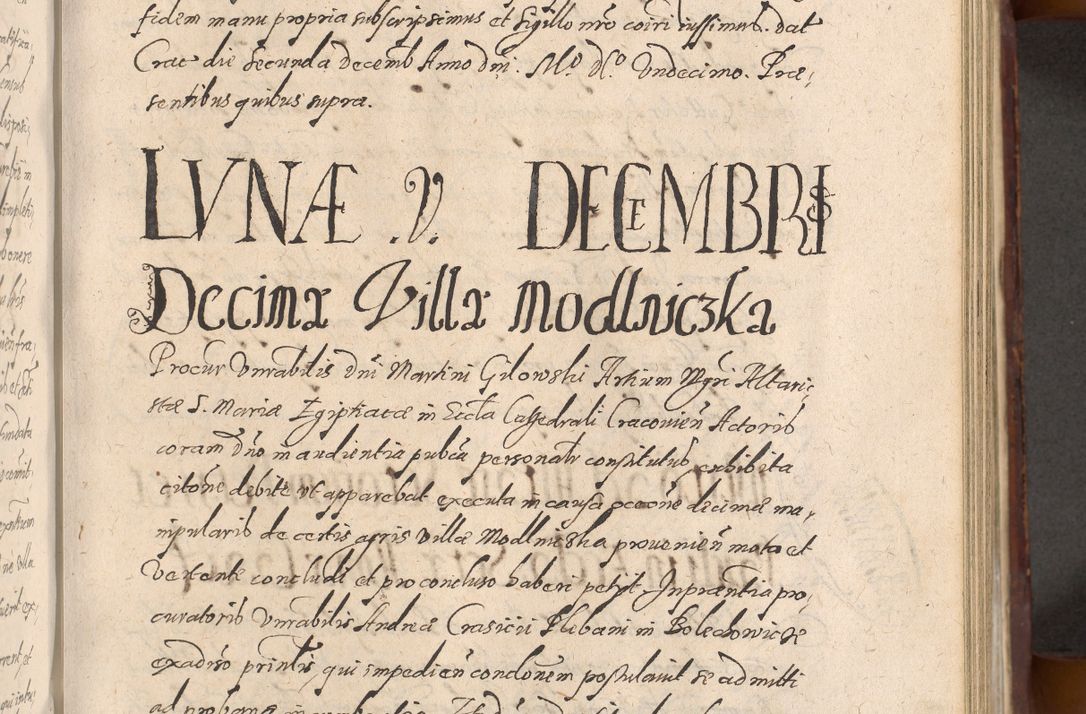 fidem manu propria subscripsimus et sigillo nr̄o coīri iussimus. dat
Crac die secunda decemb Anno dnī. Mº. dº. Vndecimo. Præ,
sentibus quibus supra.
LVNÆ .V. DECEMBRIS
Decima Villa Modlniczka
Procur Vnrabilis Dnī Martini Gilowski Artium Mgrī Altari,
stæ S. Mariæ Egiptiacæ in Eccla Cathedrali Cracovień Actoris
coram Dno in audientia pubca personalr constitutus exhibita
citone debite vt apparebat executa in causa occone decimæ ma,
nipularis de certis agris villæ Modlniczka provenień mota et
Vertente concludi et pro concluso haberi petijt. In præntia pro,
curatoris Vnrabilis Andreæ Crasicii Plebani in Bolechowicze
ex adverso printis, qui impedień condonem postulavit se admitti
ad proband